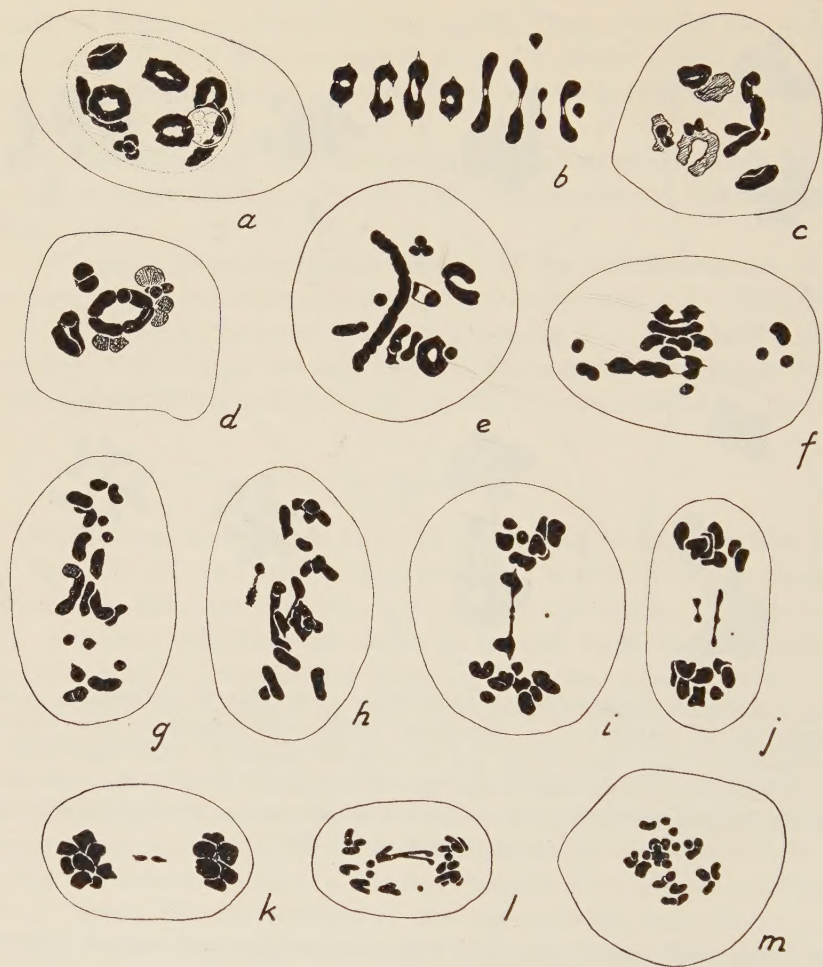 a
b
c
d
e
f
g
h
i
j
k
l
m